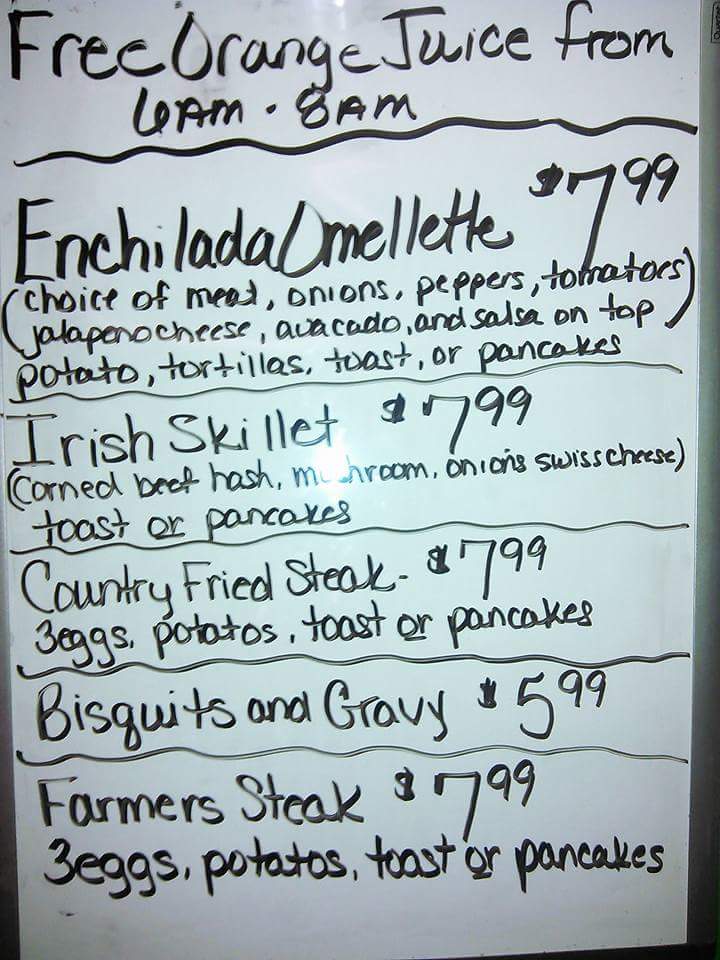 Free Orange Juice from
6AM - 8AM
Enchilada Omellette $7.99
(choice of meat, onions, peppers, tomatoes
jalapeno cheese, avacado, and salsa on top)
potato, tortillas, toast, or pancakes
Irish Skillet $7.99
(Corned beef hash, mushroom, onions swiss cheese)
toast or pancakes
Country Fried Steak - $7.99
3eggs, potatos, toast or pancakes
Bisquits and Gravy $5.99
Farmers Steak $7.99
3eggs, potatos, toast or pancakes